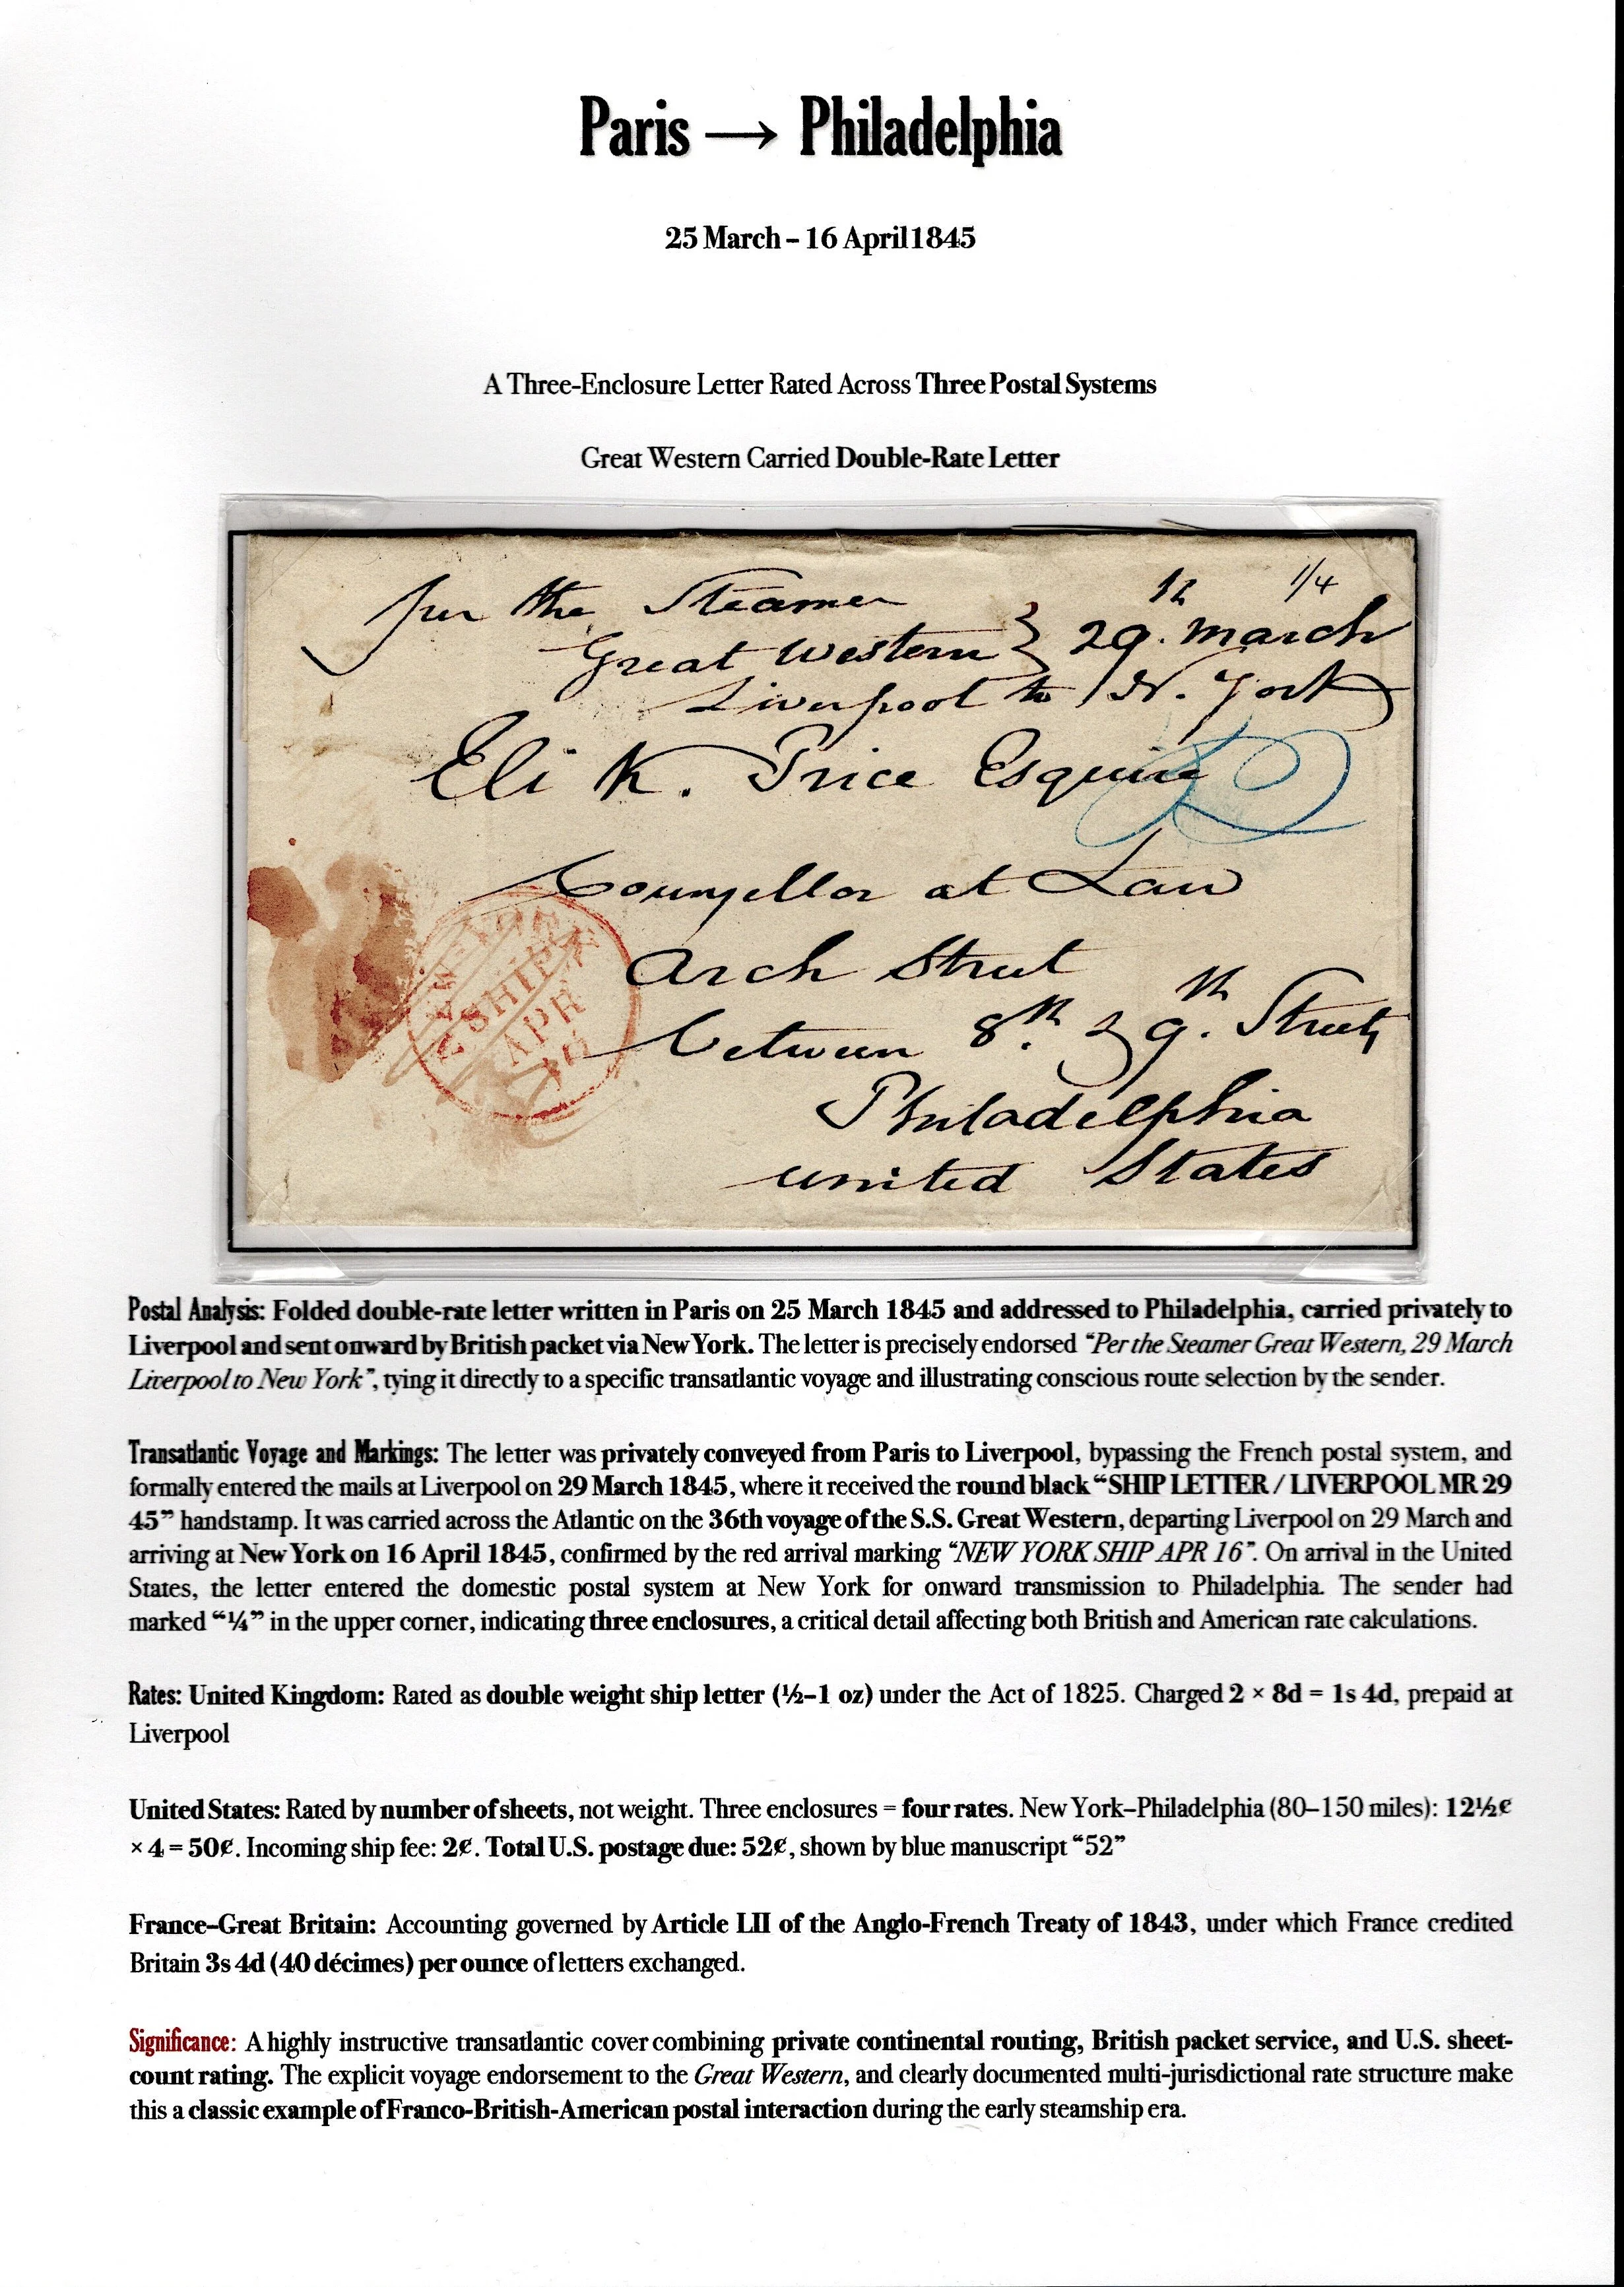 Paris → Philadelphia
25 March – 16 April 1845
A Three-Enclosure Letter Rated Across Three Postal Systems
Great Western Carried Double-Rate Letter
per the Steamer
Great Western } 29th. March
1/4
Liverpool to N. York
Eli K. Price Esquire
Counsellor at Law
Arch Street
SHIP
APR
between 8th. & 9th. Streets
Philadelphia
United States
Postal Analysis: Folded double-rate letter written in Paris on 25 March 1845 and addressed to Philadelphia, carried privately to
Liverpool and sent onward by British packet via New York. The letter is precisely endorsed “Per the Steamer Great Western, 29 March
Liverpool to New York”, tying it directly to a specific transatlantic voyage and illustrating conscious route selection by the sender.
Transatlantic Voyage and Markings: The letter was privately conveyed from Paris to Liverpool, bypassing the French postal system, and
formally entered the mails at Liverpool on 29 March 1845, where it received the round black “SHIP LETTER / LIVERPOOL MR 29
45” handstamp. It was carried across the Atlantic on the 36th voyage of the S.S. Great Western, departing Liverpool on 29 March and
arriving at New York on 16 April 1845, confirmed by the red arrival marking “NEW YORK SHIP APR 16”. On arrival in the United
States, the letter entered the domestic postal system at New York for onward transmission to Philadelphia. The sender had
marked “¼” in the upper corner, indicating three enclosures, a critical detail affecting both British and American rate calculations.
Rates: United Kingdom: Rated as double weight ship letter (½–1 oz) under the Act of 1825. Charged 2 × 8d = 1s 4d, prepaid at
Liverpool
United States: Rated by number of sheets, not weight. Three enclosures = four rates. New York–Philadelphia (80–150 miles): 12½¢
× 4 = 50¢. Incoming ship fee: 2¢. Total U.S. postage due: 52¢, shown by blue manuscript “52”
France–Great Britain: Accounting governed by Article LII of the Anglo-French Treaty of 1843, under which France credited
Britain 3s 4d (40 décimes) per ounce of letters exchanged.
Significance: A highly instructive transatlantic cover combining private continental routing, British packet service, and U.S. sheet-
count rating. The explicit voyage endorsement to the Great Western, and clearly documented multi-jurisdictional rate structure make
this a classic example of Franco-British-American postal interaction during the early steamship era.